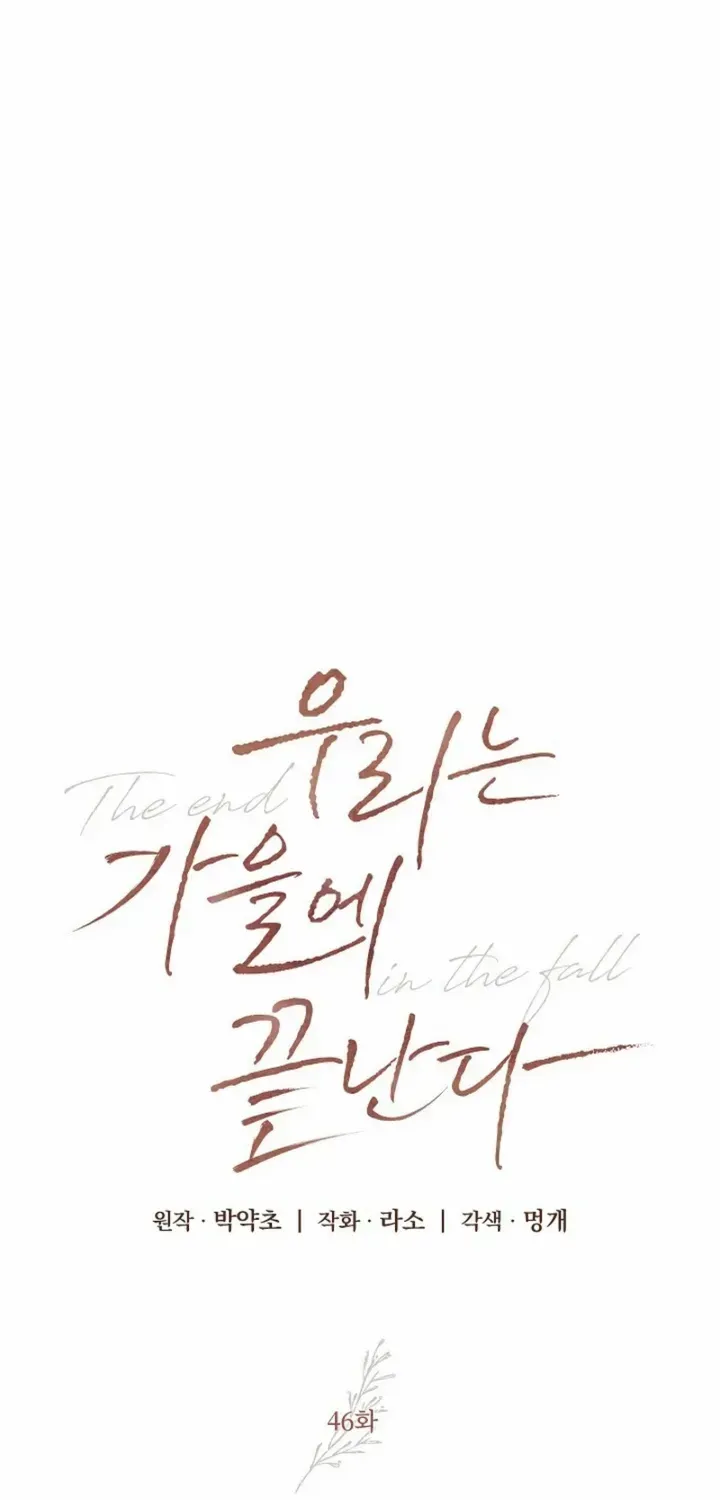 우리는
The end
가을에
in the fall
끝난다
원작 · 박약초 | 작화 · 라소 | 각색 · 멍개
46화